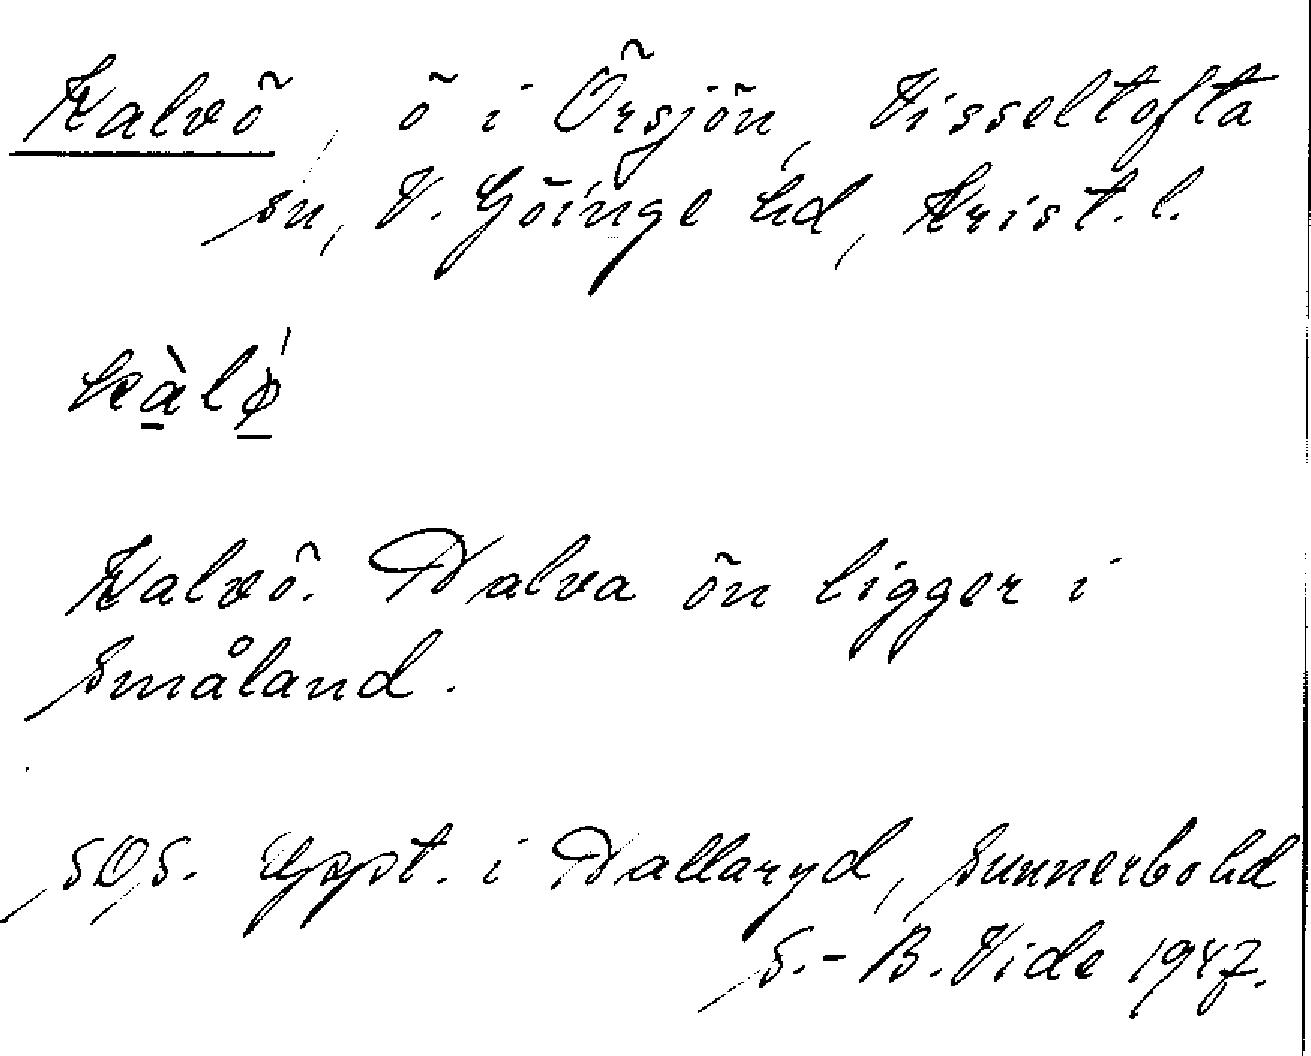 Kalvö, ö i Örsjön, Visseltofta
sn, V. Göinge hd, Krist. l.
kàlø̍
Kalvö. Halva ön ligger i
Småland.
SOS. Uppt. i Hallaryd, Sunnerbo hd
S.-B. Vide 1947.